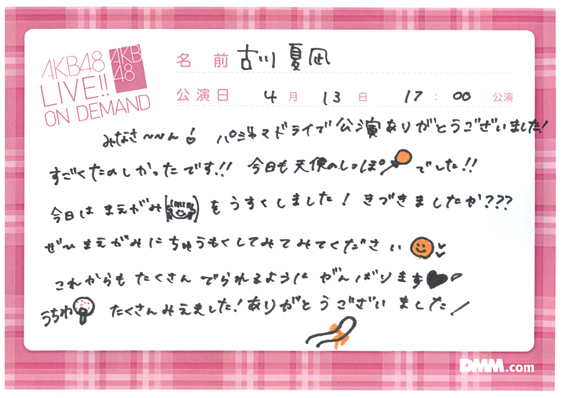 AKB48
LIVE!!
ON DEMAND
AKB
48
名前 古川 夏凪
公演日 4月 13日 17:00 公演
みなさ~~ん! パジャマドライブ公演ありがとうございました!
すごくたのしかったです!! 今日も天使のしっぽでした!!
今日はまえがみをうすくしました! きづきましたか???
ぜひまえがみにちゅうもくしてみてみてください
これからもたくさんでられるようにがんばります
うちわ たくさんみえました!ありがとうございました!
DMM.com